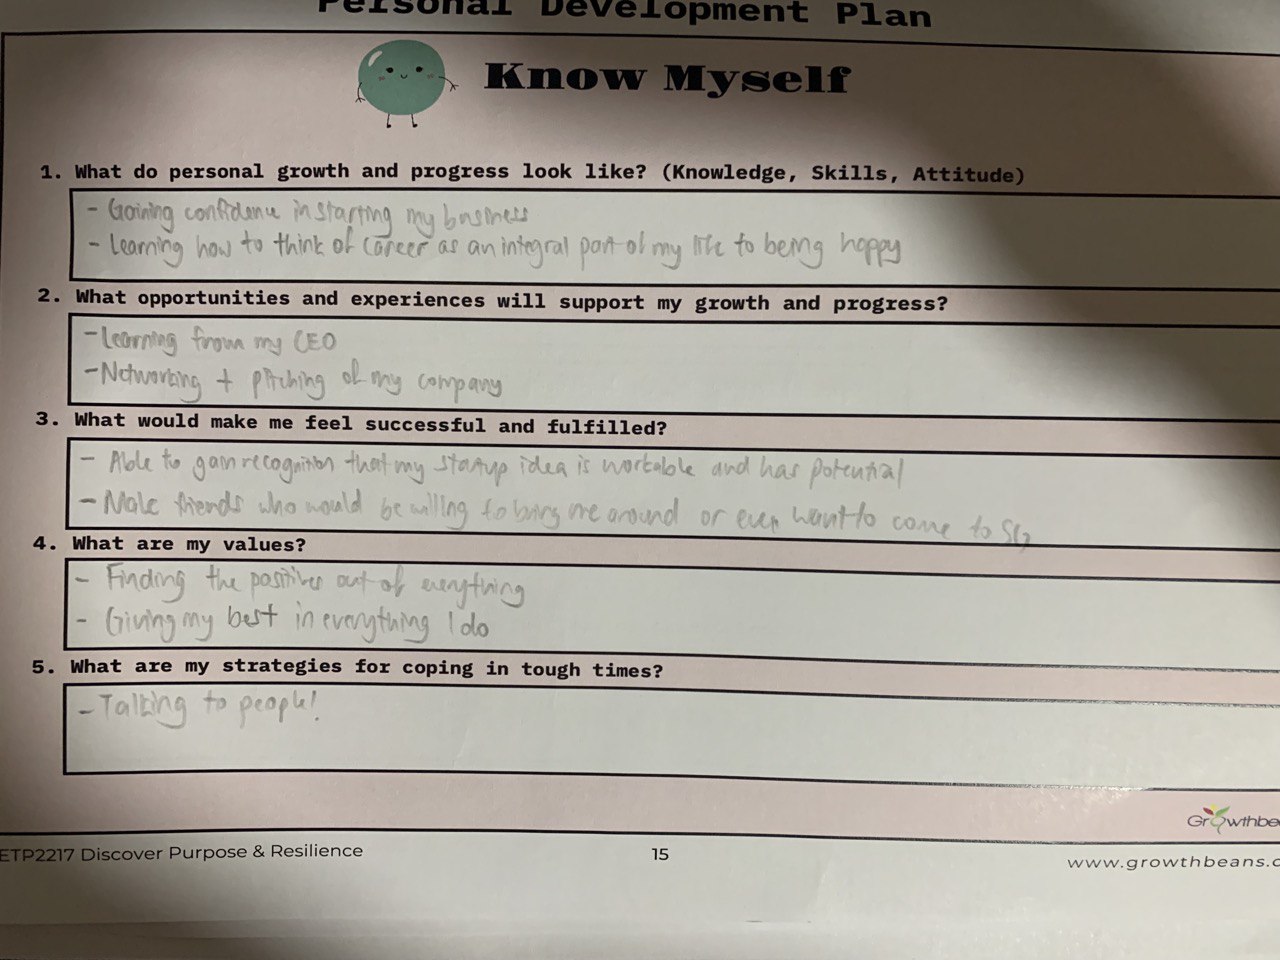 Personal Development Plan
Know Myself
1. What do personal growth and progress look like? (Knowledge, Skills, Attitude)
- Gaining confidence in starting my business
- Learning how to think of career as an integral part of my life to being happy
2. What opportunities and experiences will support my growth and progress?
- Learning from my CEO
- Networking + pitching of my company
3. What would make me feel successful and fulfilled?
- Able to gain recognition that my startup idea is workable and has potential
- Make friends who would be willing to bring me around or even want to come to SG
4. What are my values?
- Finding the positives out of everything
- Giving my best in everything I do
5. What are my strategies for coping in tough times?
- Talking to people!
Growthbe
ETP2217 Discover Purpose & Resilience
15
www.growthbeans.c